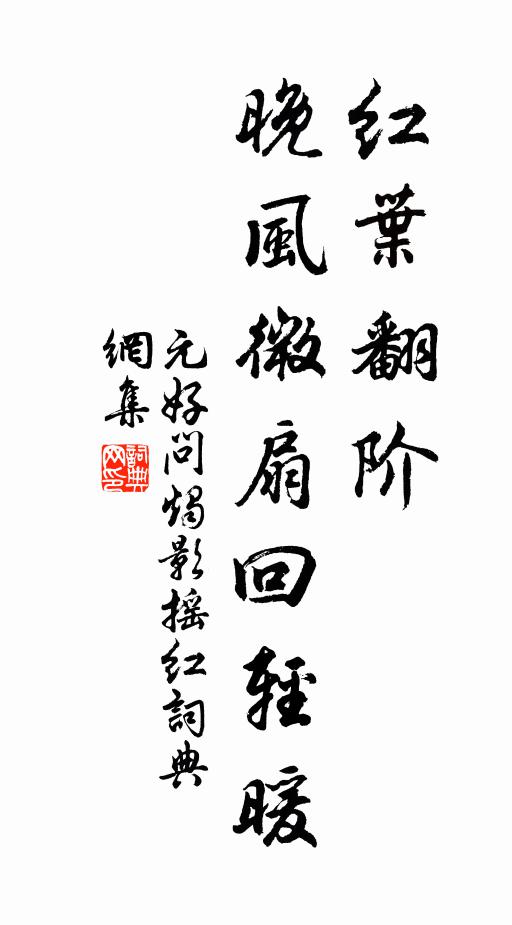 红葉翻阶
晚風微扇回輕暖
元好问燭影摇红詞典
網集
詞典
网印